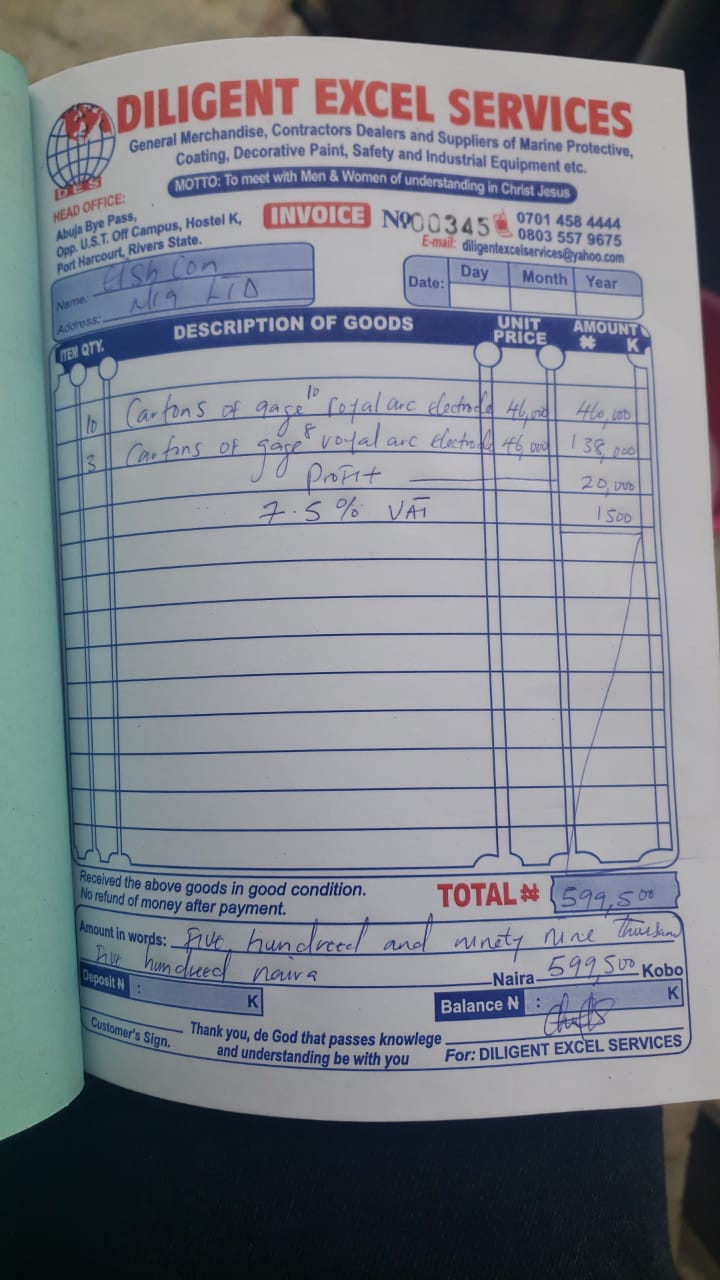 DILIGENT EXCEL SERVICES
General Merchandise, Contractors Dealers and Suppliers of Marine Protective,
Coating, Decorative Paint, Safety and Industrial Equipment etc.
DES
MOTTO: To meet with Men & Women of understanding in Christ Jesus
HEAD OFFICE:
Abuja Bye Pass,
Opp. U.S.T. Off Campus, Hostel K,
Port Harcourt, Rivers State.
INVOICE No 00345
0701 458 4444
0803 557 9675
E-mail: diligentexcelservices@yahoo.com
Name:
Address: Nig LTD
Date: Day Month Year
ITEM QTY. DESCRIPTION OF GOODS UNIT PRICE AMOUNT ₦ K
10 Cartons of gage 10 royal arc electrode 46,000 460,000
3 Cartons of gage 8 royal arc electrode 46,000 138,000
Profit 20,000
7.5% VAT 1500
Received the above goods in good condition.
No refund of money after payment.
TOTAL ₦ 599,500
Amount in words: Five hundreed and ninety nine thousand
Five hundreed naira
Naira 599,500 Kobo
Deposit N : K
Balance N : K
Customer's Sign.
Thank you, de God that passes knowlege
and understanding be with you
For: DILIGENT EXCEL SERVICES